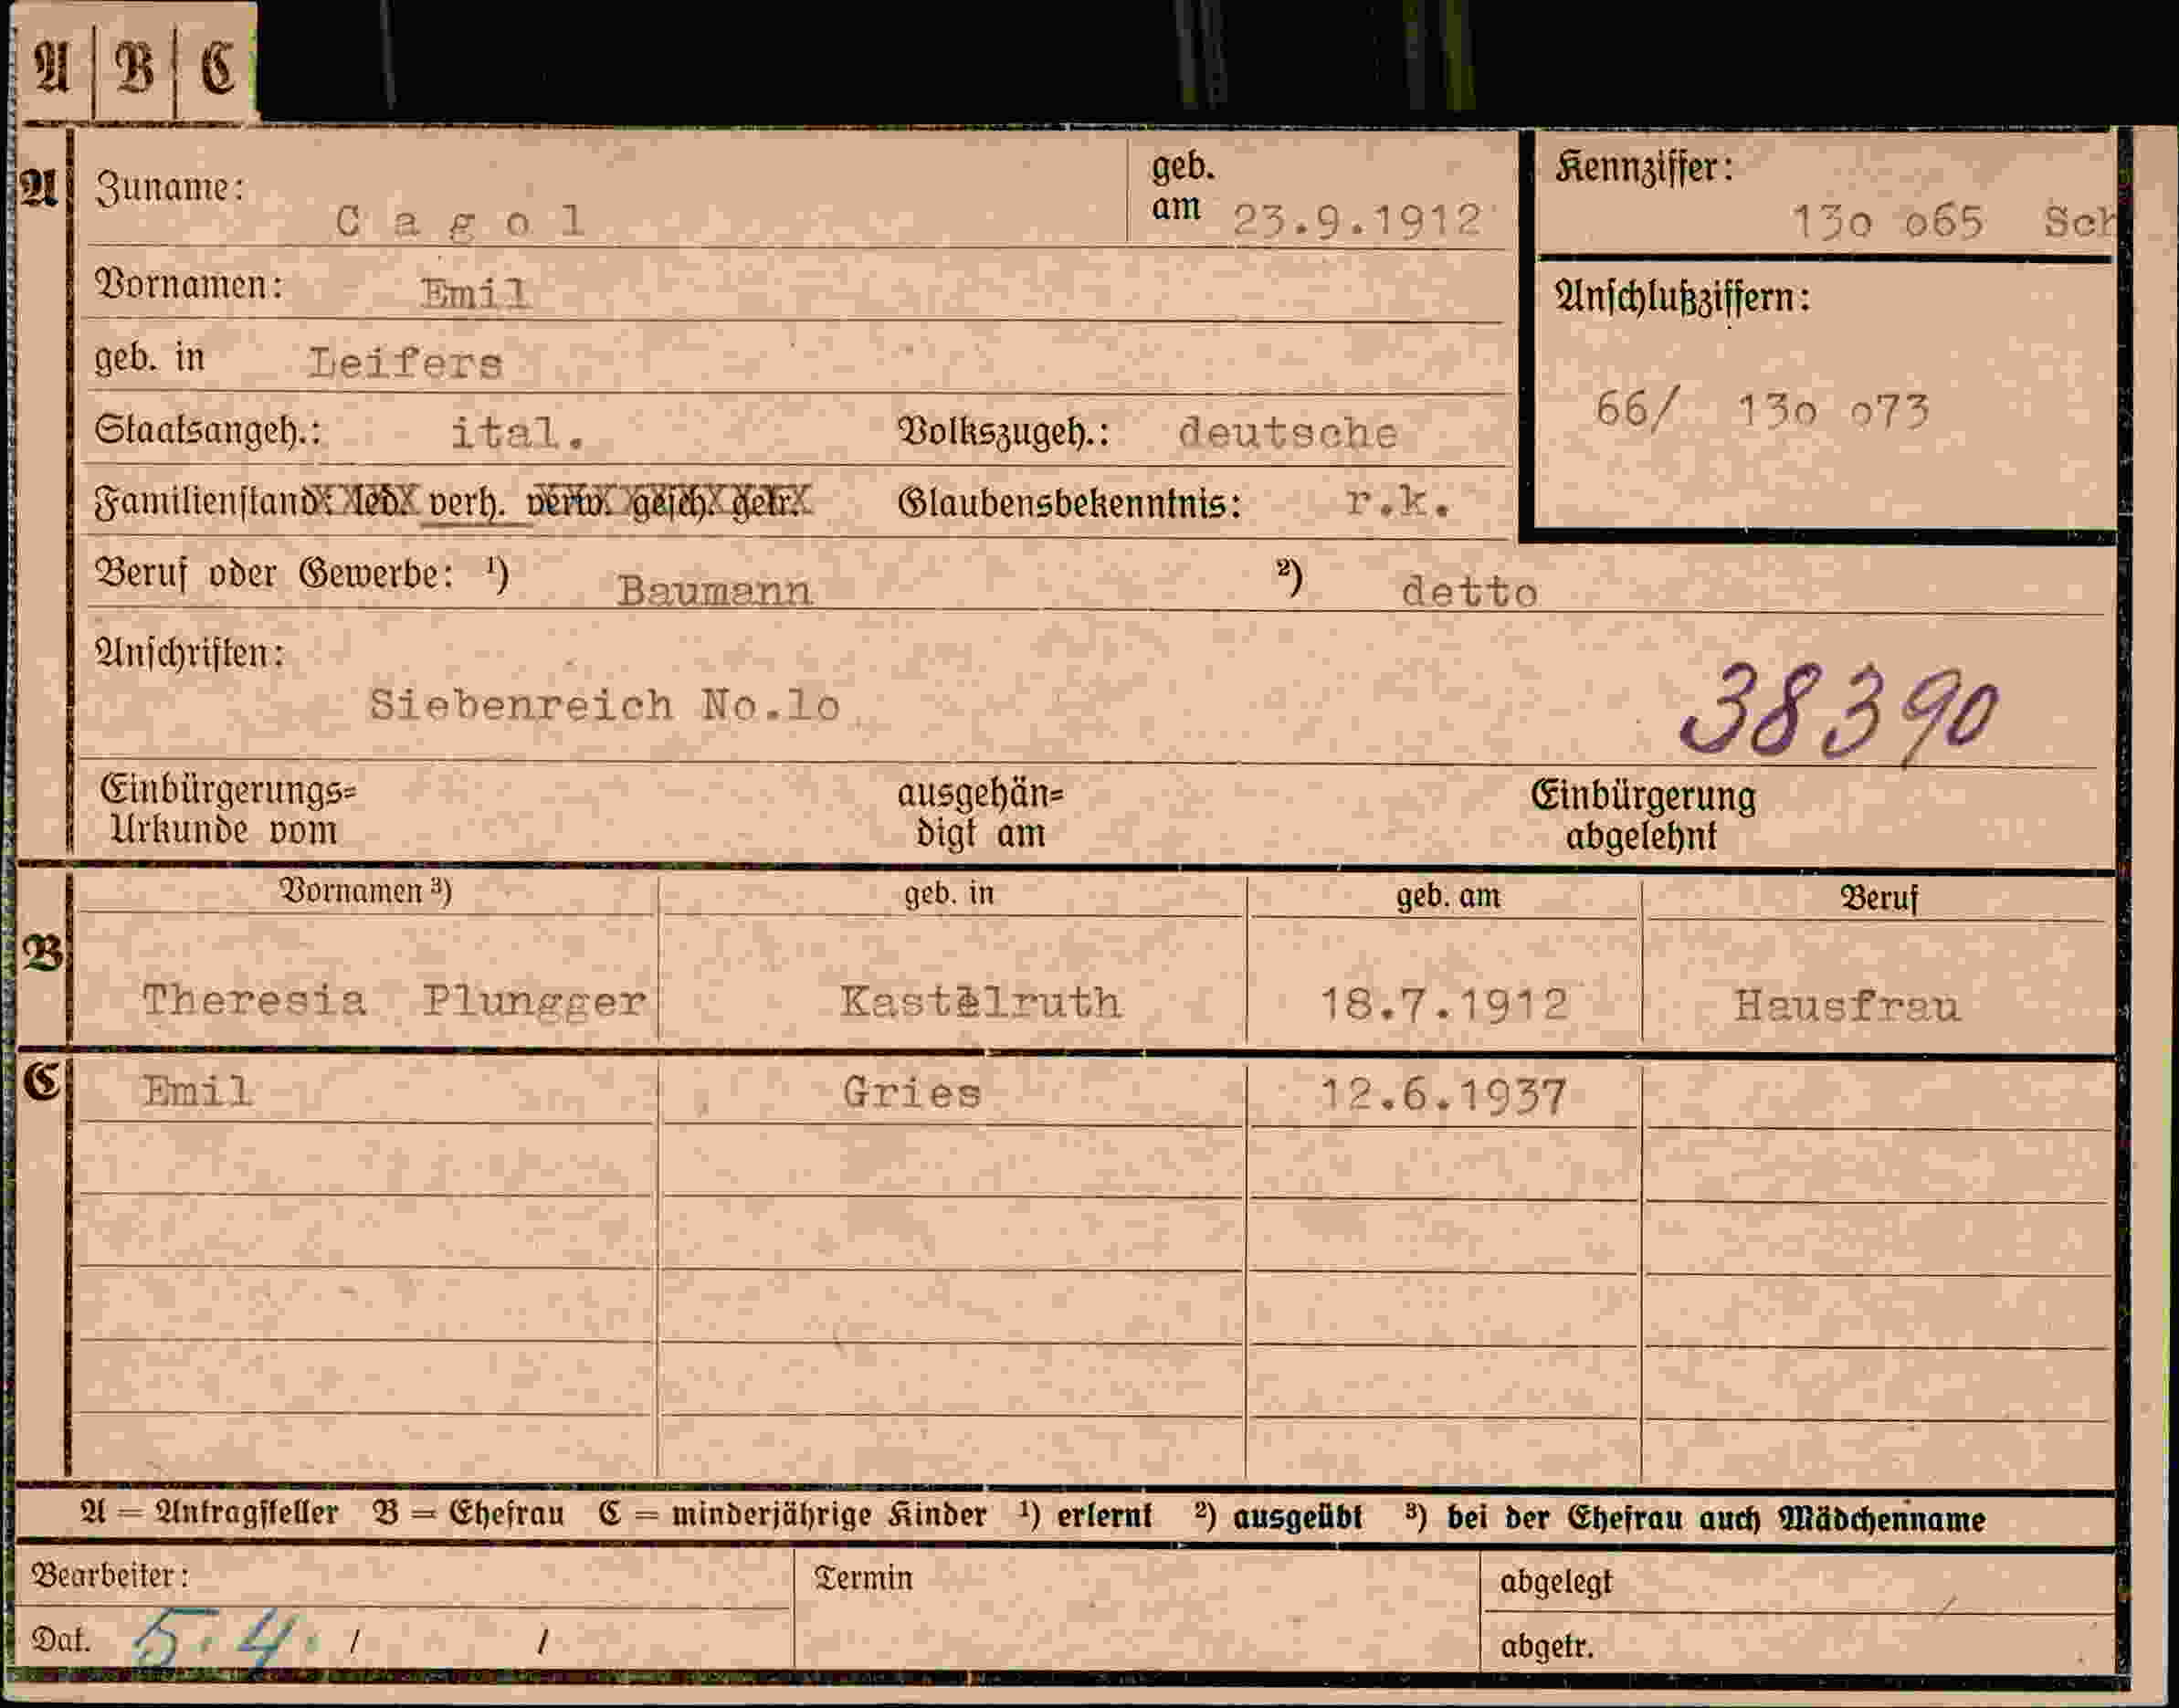 A B C
A Zuname: Cagol geb. am 23.9.1912
Kennziffer: 13o o65 Sch
Vornamen: Emil
Anschlußziffern:
geb. in Leifers
66/ 13o o73
Staatsangeh.: ital. Volkszugeh.: deutsche
Familienstand: led. verh. verw. gesch. getr. Glaubensbekenntnis: r.k.
Beruf oder Gewerbe: ¹) Baumann ²) detto
Anschriften:
Siebenreich No.lo
38390
Einbürgerungs=
Urkunde vom
ausgehän=
digt am
Einbürgerung
abgelehnt
B Vornamen ³) geb. in geb. am Beruf
Theresia Plungger Kastelruth 18.7.1912 Hausfrau
C Emil Gries 12.6.1937
A = Antragsteller B = Ehefrau C = minderjährige Kinder ¹) erlernt ²) ausgeübt ³) bei der Ehefrau auch Mädchenname
Bearbeiter: Termin abgelegt
Dat. 5.4. / / abgetr.